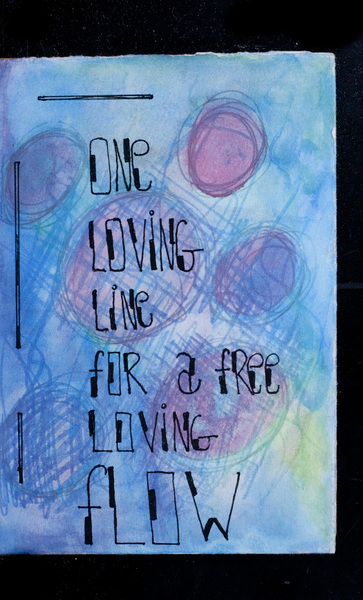 ONe
LOViNG
LiNe
fOR a fRee
LOViNG
fLOW